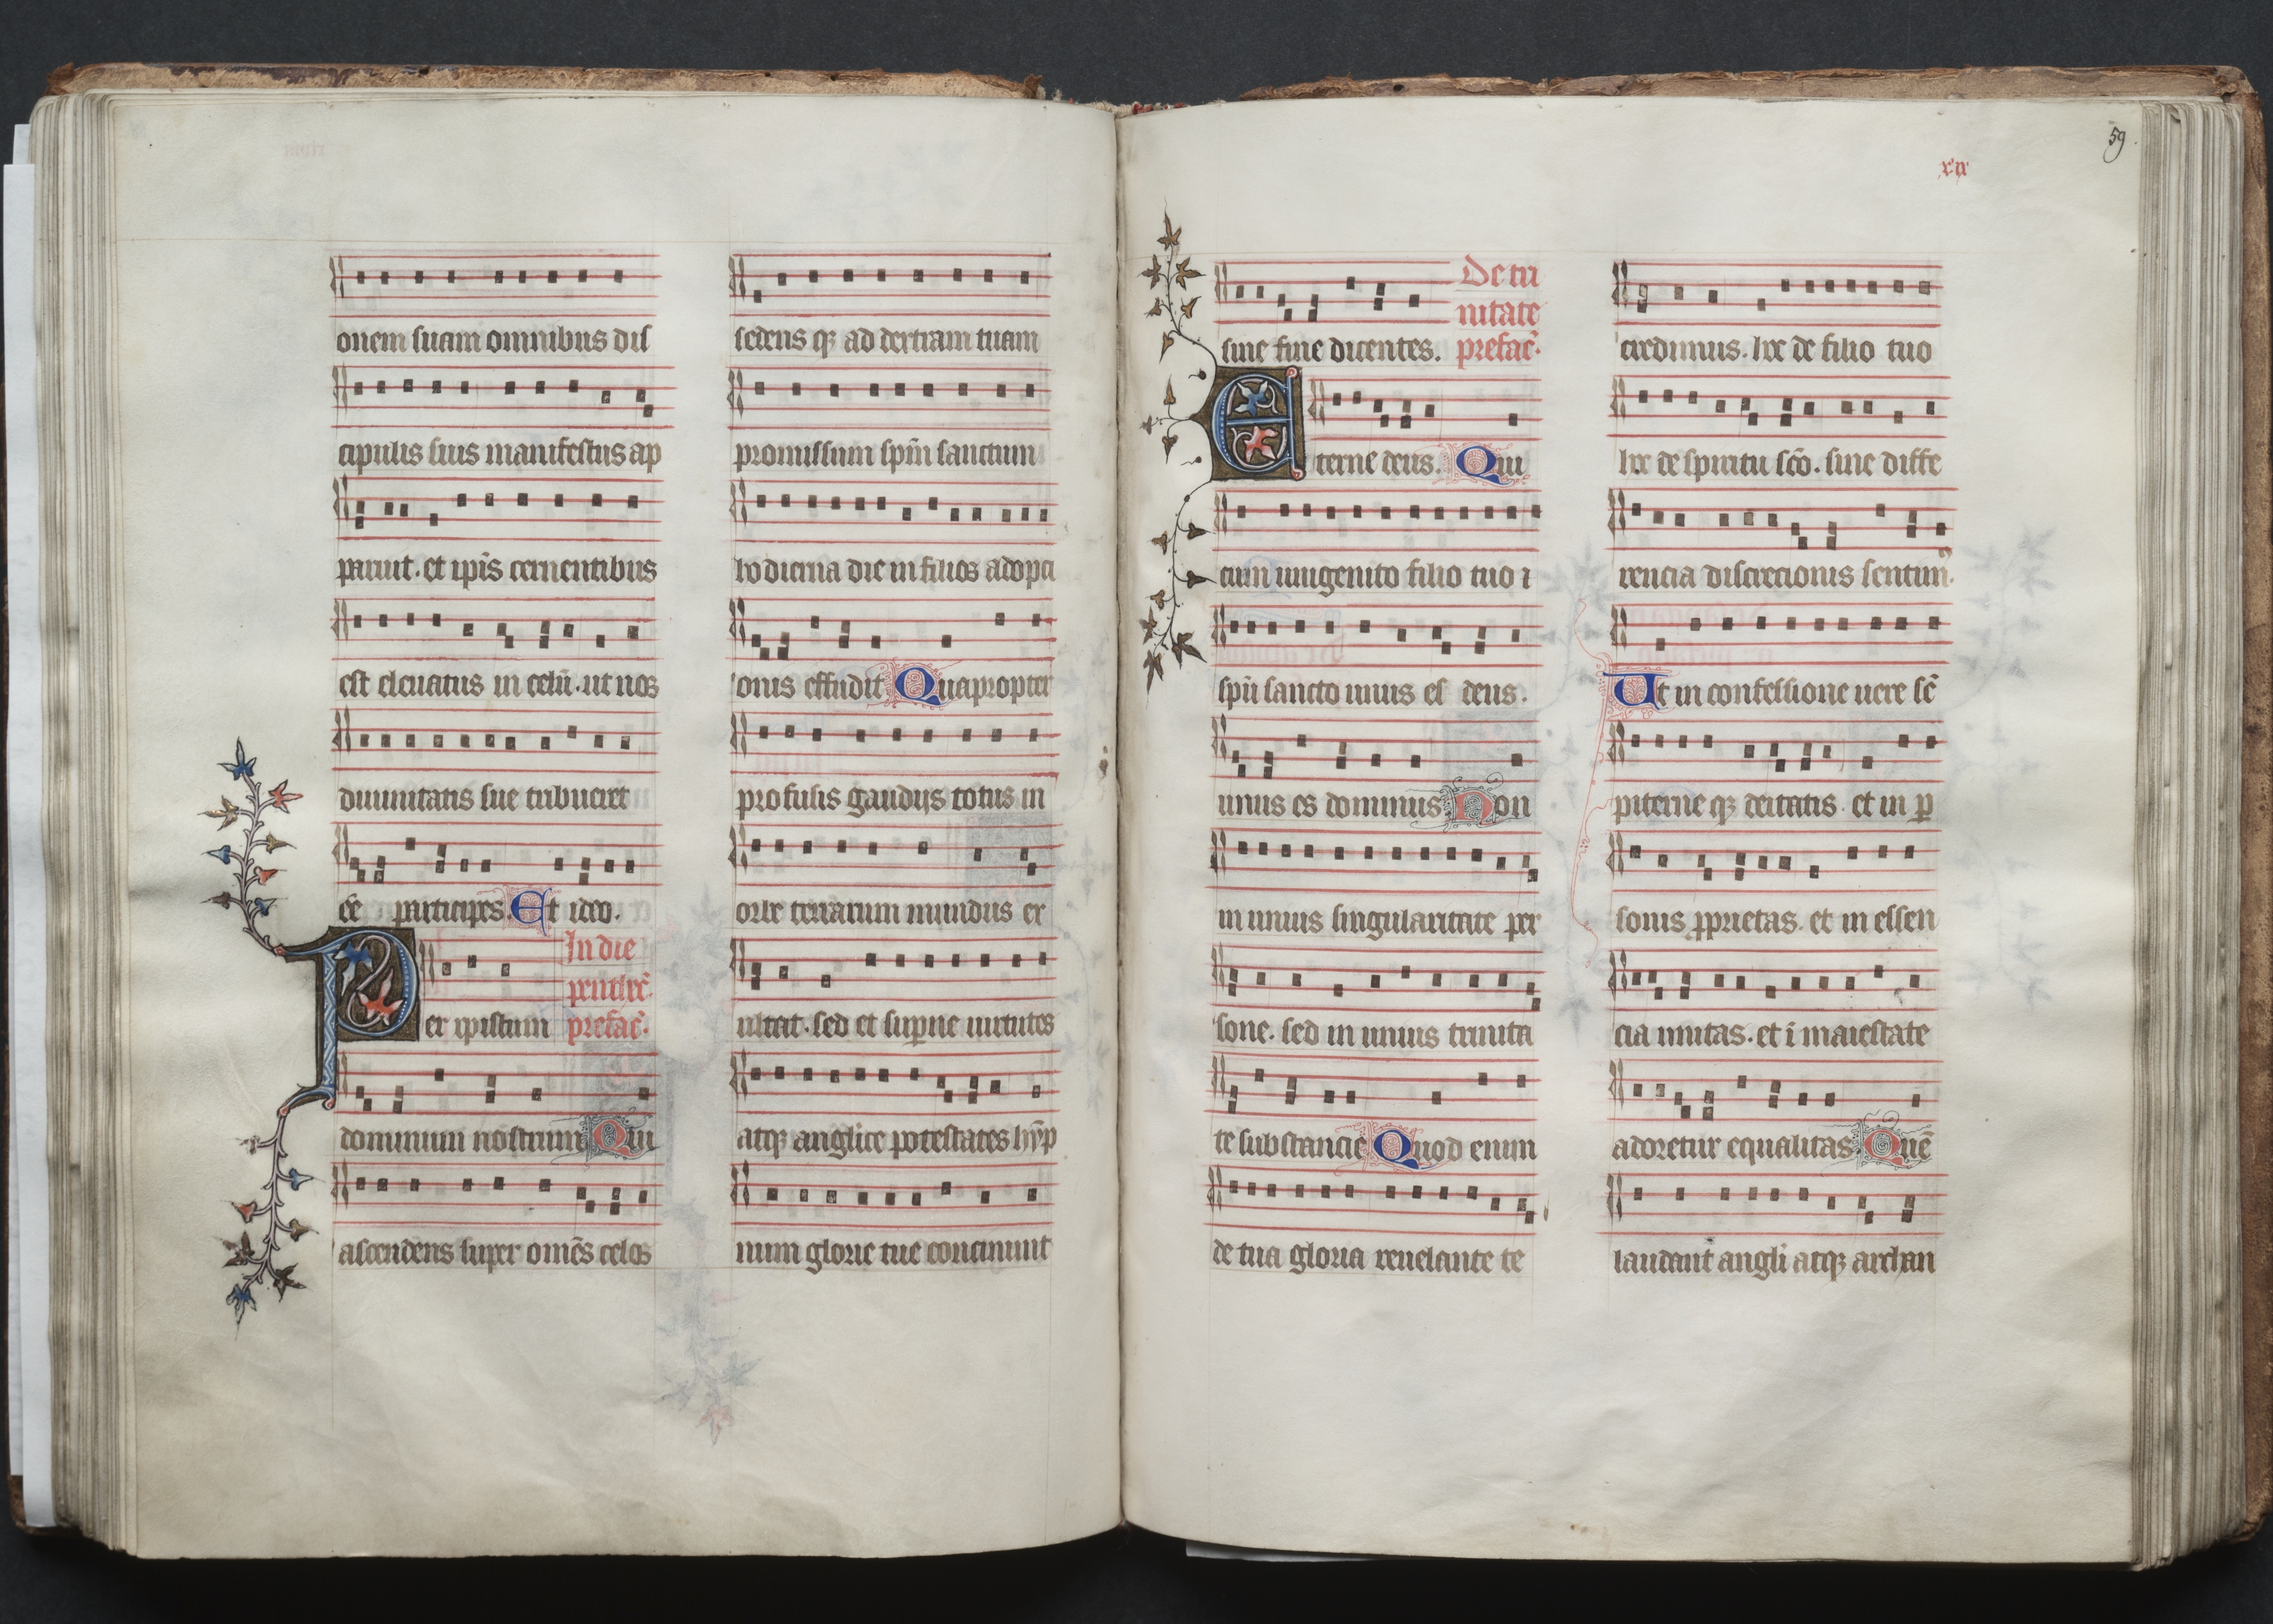 onem suam omnibus dis
cipulis suis manifestus ap
paruit. et ip̄is cernentibus
est eleuatus in celū. ut nos
diuinitatis sue tribueret
ēe participes. Et ideo.
In die
penthec̄.
Per ipistum prefac̄.
dominum nostrum Qui
ascendens super om̄es celos
sedens qꝫ ad dextram tuam
promissum sp̄m sanctum
hodierna die in filios adopti
onis effudit Quapropter
profusis gaudijs totus in
orbe terrarum mundus ex
ultat. sed et sup̄ne uirtutes
atqꝫ anglice potestates hȳp
num glorie tue concinunt
59
xix
De tri
nitate
sine fine dicentes. prefac̄.
Eterne deus. Qui
cum unigenito filio tuo ⁊
sp̄u sancto unus es deus.
unus es dominus Non
in unius singularitate per
sone. sed in unius trinita
te substancie Quod enim
de tua gloria reuelante te
credimus. hoc de filio tuo
hoc de spiritu sc̄o. sine diffe
rencia discrecionis sentim᷒.
Ut in confessione uere sē
piterne qꝫ deitatis. et in ꝑ
sonis ꝓprietas. et in essen
cia unitas. et ī maiestate
adoretur equalitas Quē
laudant angli atqꝫ archan